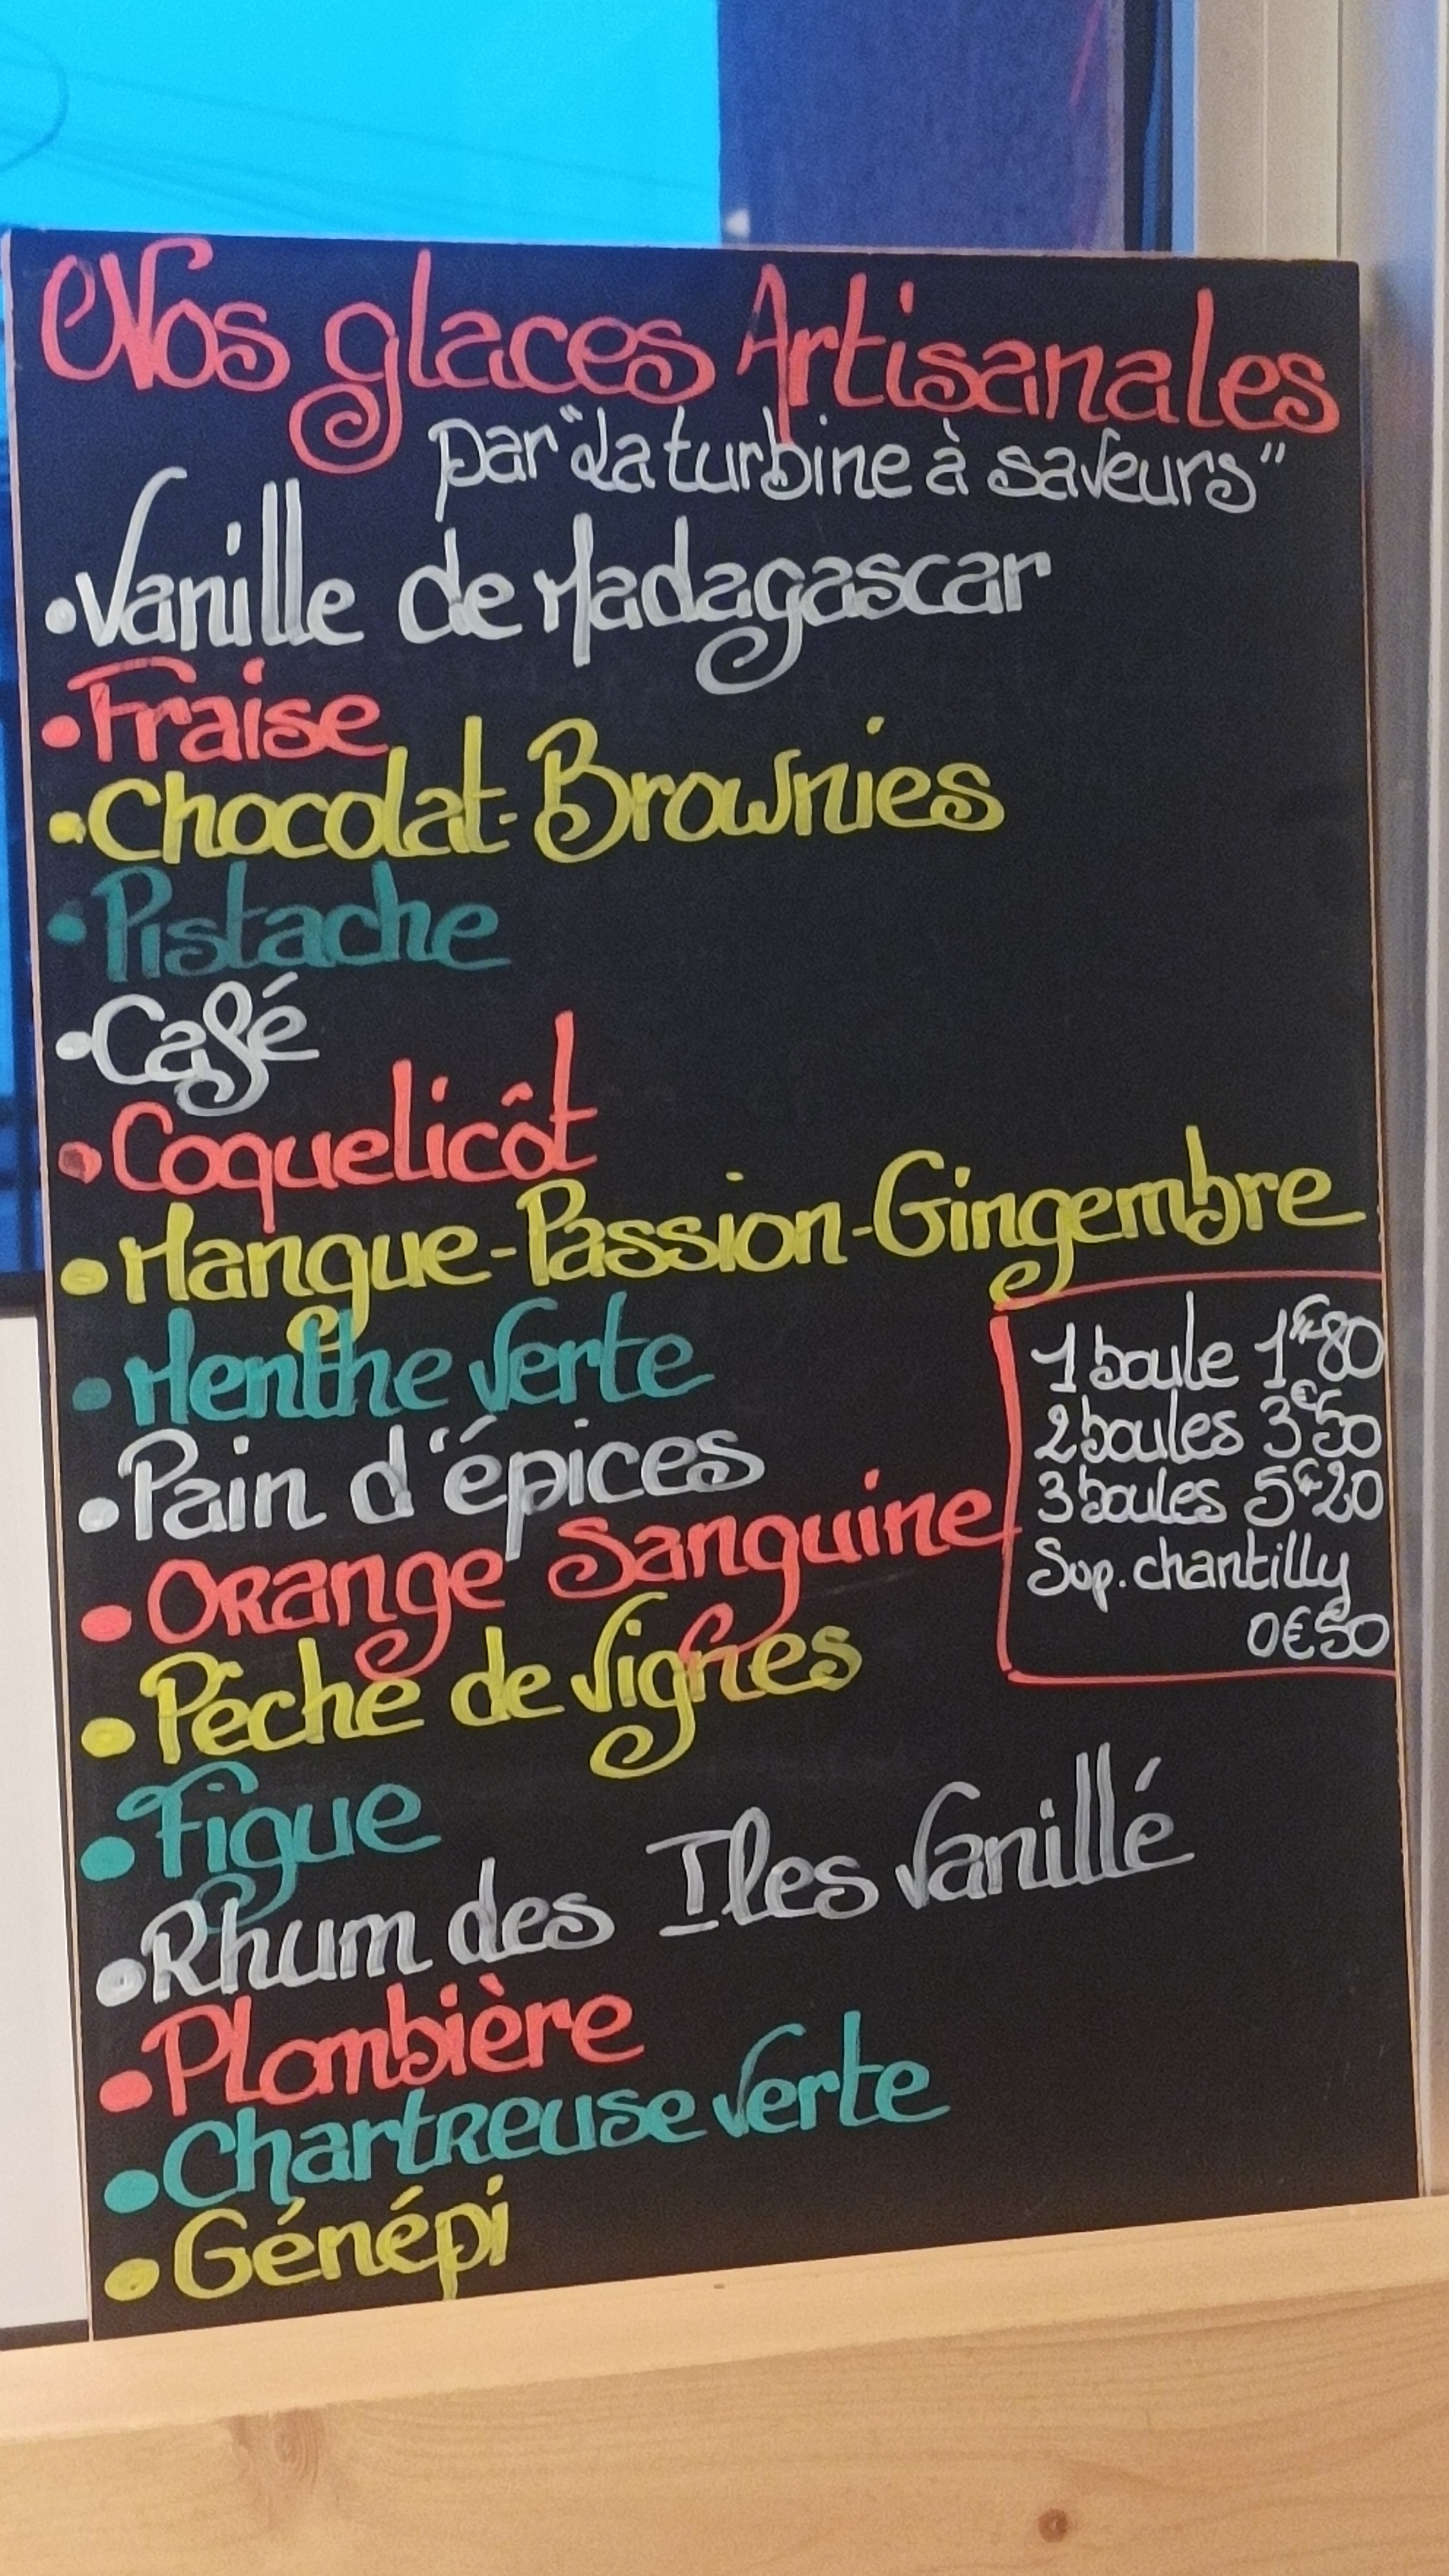 Nos glaces Artisanales
par "La turbine à saveurs"
• Vanille de Madagascar
• Fraise
• Chocolat-Brownies
• Pistache
• Café
• Coquelicôt
• Mangue-Passion-Gingembre
• Menthe Verte
• Pain d'épices
• Orange Sanguine
• Pêche de Vignes
• Figue
• Rhum des Iles Vanillé
• Plombière
• Chartreuse Verte
• Génépi
1 boule 1€80
2 boules 3€50
3 boules 5€20
Sup. chantilly
0€50